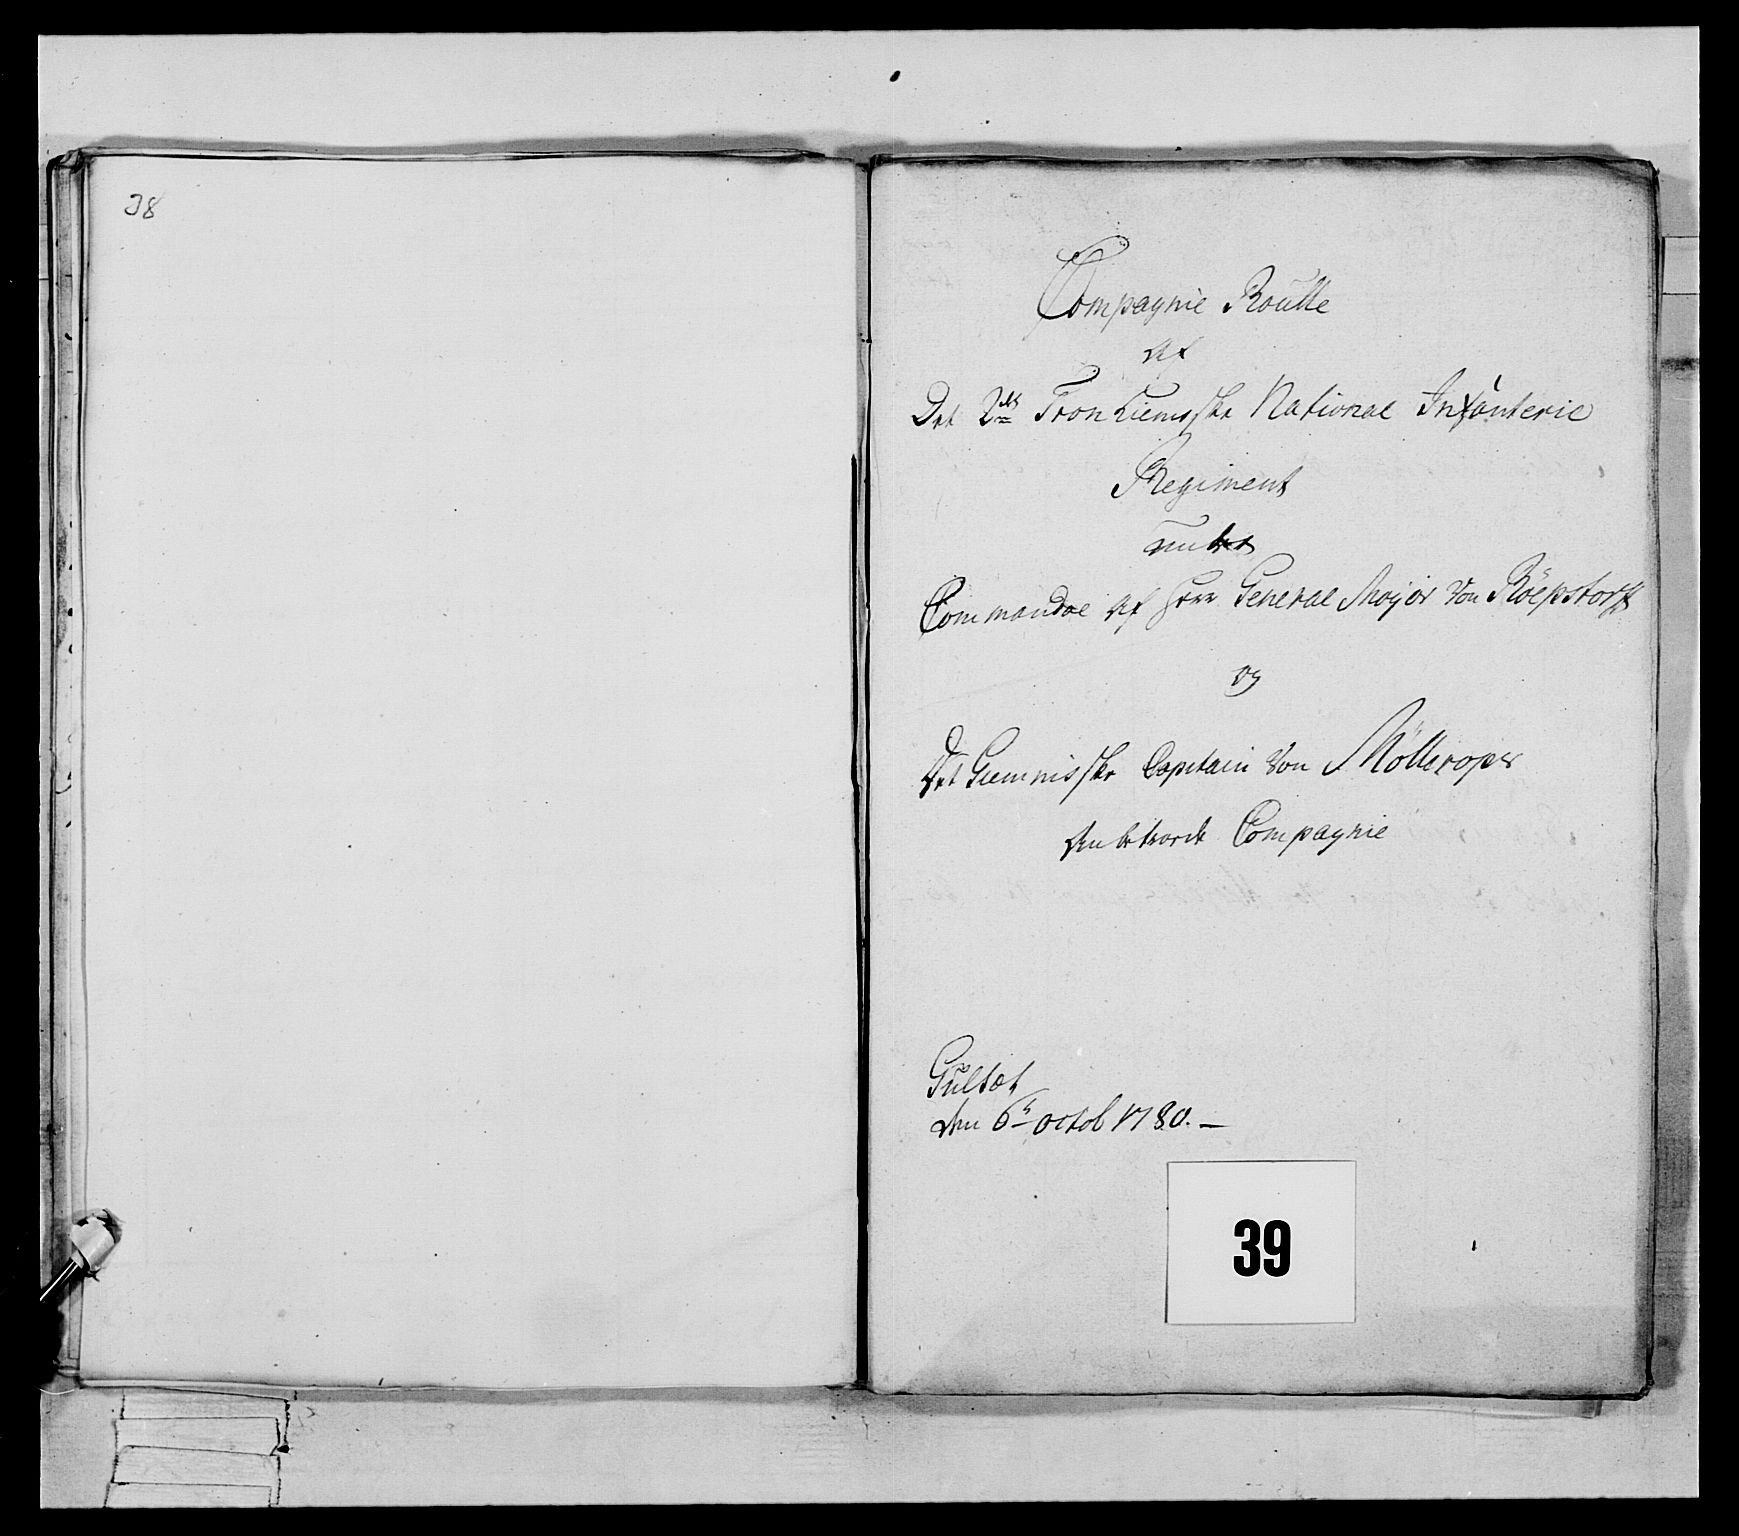 38
Compagnie Roulle
Af
Det 2det Tronhiemsske National Infanterie
Regiment
under
Commandoe Af Herr General Major Von Röepstorff
og
Det Guemnisske Capitain Von Möllerops
Anbetroede Compagnie
Gulset
den 6t octob 1780. —
39